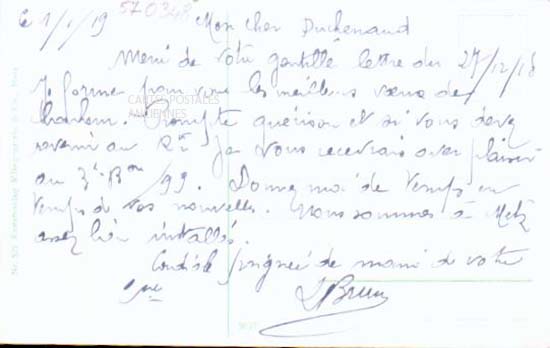 Le 1/1/19 570348 Mon cher Duchenaud
Merci de votre gentille lettre du 27/12/18
Je forme pour vous les meilleurs vœux de
CARTES POSTALES
ANCIENNES
bonheur. Prompte guérison et si vous devez
revenir au Rt je vous recevrais avec plaisir
au 3e Bon/99. Donnez moi de temps en
temps de vos nouvelles. Nous sommes à Metz
assez bien installés.
Cordiale poignée de main de votre
L Brun